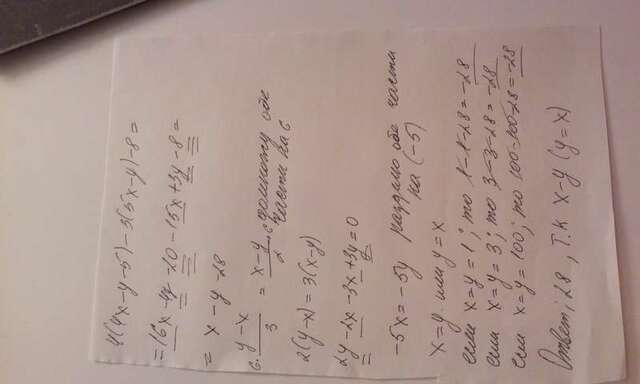 4(4x-y-5)-3(5x-y)-8=
=16x-4y-20-15x+3y-8=
= x-y-28
6· (y-x)/3 = (x-y)/2 ·6 домножу обе
части на 6
2(y-x)=3(x-y)
2y-2x-3x+3y=0
-5x=-5y разделю обе части
на (-5)
x=y или y=x
если x=y=1; то 1-1-28=-28
если x=y=3; то 3-3-28=-28
если x=y=100; то 100-100-28=-28
Ответ; 28, т.к x-y (y=x)